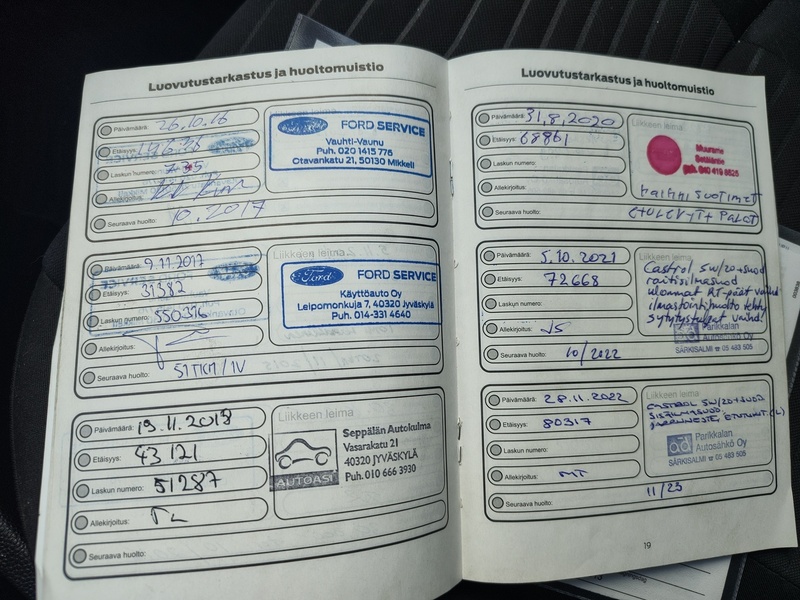 Luovutustarkastus ja huoltomuistio
Päivämäärä: 26.10.16
Etäisyys:
Laskun numero:
Allekirjoitus:
Seuraava huolto: 10.2017
Ford
FORD SERVICE
Vauhti-Vaunu
Puh. 020 1415 776
Otavankatu 21, 50130 Mikkeli
Päivämäärä: 9.11.2017
Etäisyys: 31382
Laskun numero: 550316
Allekirjoitus:
Seuraava huolto: 51TKM/1V
Liikkeen leima
Ford
FORD SERVICE
Käyttöauto Oy
Leipomonkuja 7, 40320 Jyväskylä
Puh. 014-331 4640
Päivämäärä: 19.11.2018
Etäisyys: 43121
Laskun numero: 51287
Allekirjoitus:
Seuraava huolto:
Liikkeen leima
AUTOASI
Seppälän Autokulma
Vasarakatu 21
40320 JYVÄSKYLÄ
Puh. 010 666 3930
Luovutustarkastus ja huoltomuistio
Päivämäärä: 31.8.2020
Etäisyys: 68861
Laskun numero:
Allekirjoitus:
Seuraava huolto:
Liikkeen leima
Muuramen
kaikki suotimet
etulevyt+palat
Päivämäärä: 5.10.2021
Etäisyys: 72668
Laskun numero:
Allekirjoitus: JS
Seuraava huolto: 10/2022
Castrol 5w/20+suod
raitisilmasuod
ulommat RT-päät vaihd
ilmastointihuolto tehty
sytytystulpat vaihd!
Parikkalan
Autosähkö Oy
SÄRKISALMI ☎ 05 483 505
Päivämäärä: 28.11.2022
Etäisyys: 80317
Laskun numero:
Allekirjoitus: MT
Seuraava huolto: 11/23
CASTROL 5W/20+SUOD
SISÄILMASUOD,
JARRUNESTE,
Parikkalan
Autosähkö Oy
SÄRKISALMI ☎ 05 483 505
19